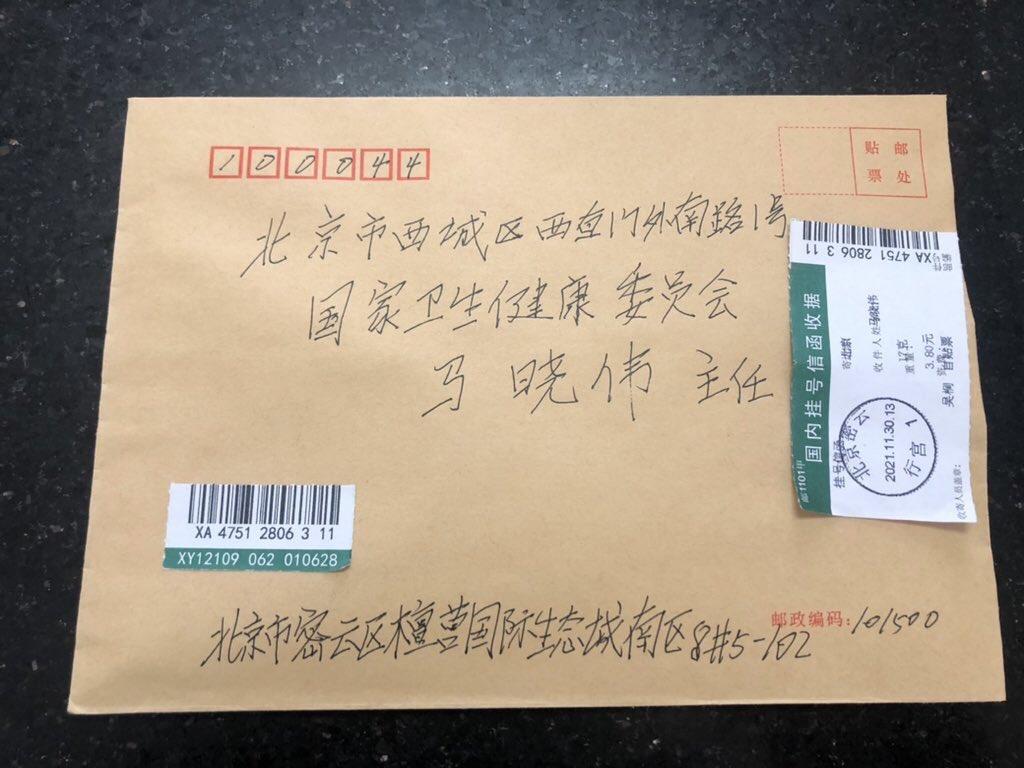 100044
贴 邮
票 处
北京市西城区西直门外南路1号
国家卫生健康委员会
马晓伟 主任
XA 4751 2806 3 11
国内挂号信函收据
邮1101甲
挂号信函
寄北京
收件人姓名
马晓伟
3.80元
吴柳
北京密云
2021.11.30.13
行宫 1
收寄人员盖章:
XA 4751 2806 3 11
XY12109 062 010628
邮政编码: 101500
北京市密云区檀营国际生态城南区8#5-102